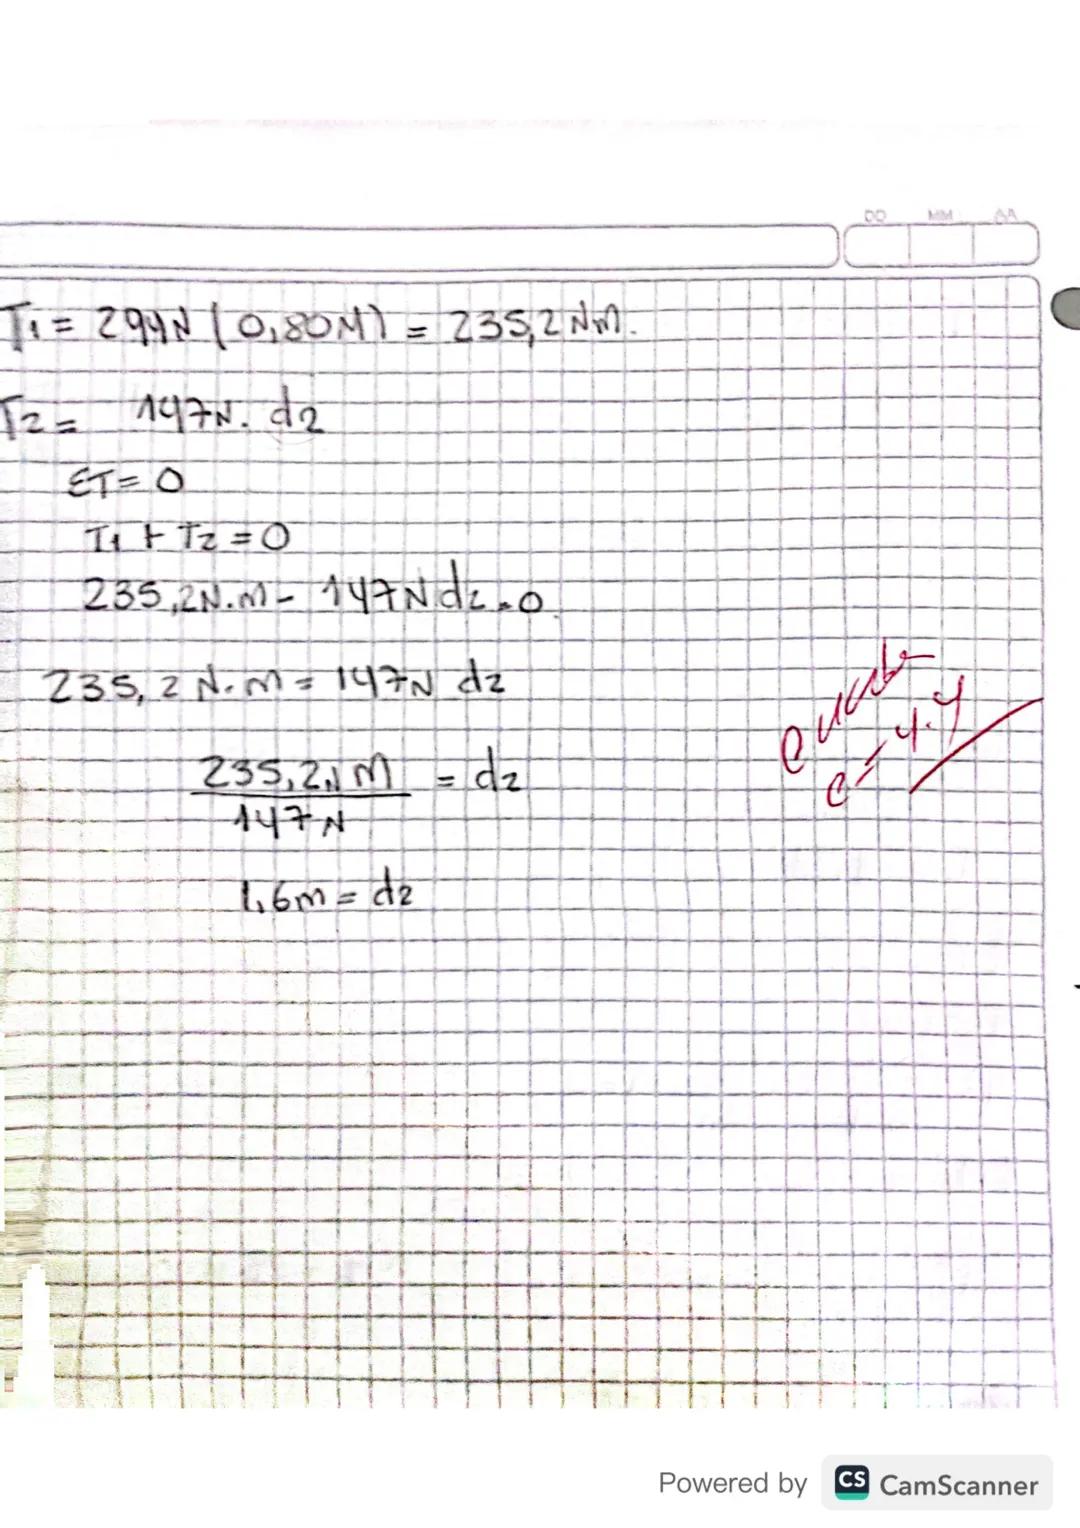 DD MM AA
T1 = 294N (0,80M) = 235,2 Nm.
T2 = 147N. d2
ET = 0
T1 + T2 = 0
235,2N.m - 147N d2 = 0
235,2 N.m = 147N d2
235,2N M = d2
147N
1,6m = d2
c = 4.4
Powered by CS CamScanner